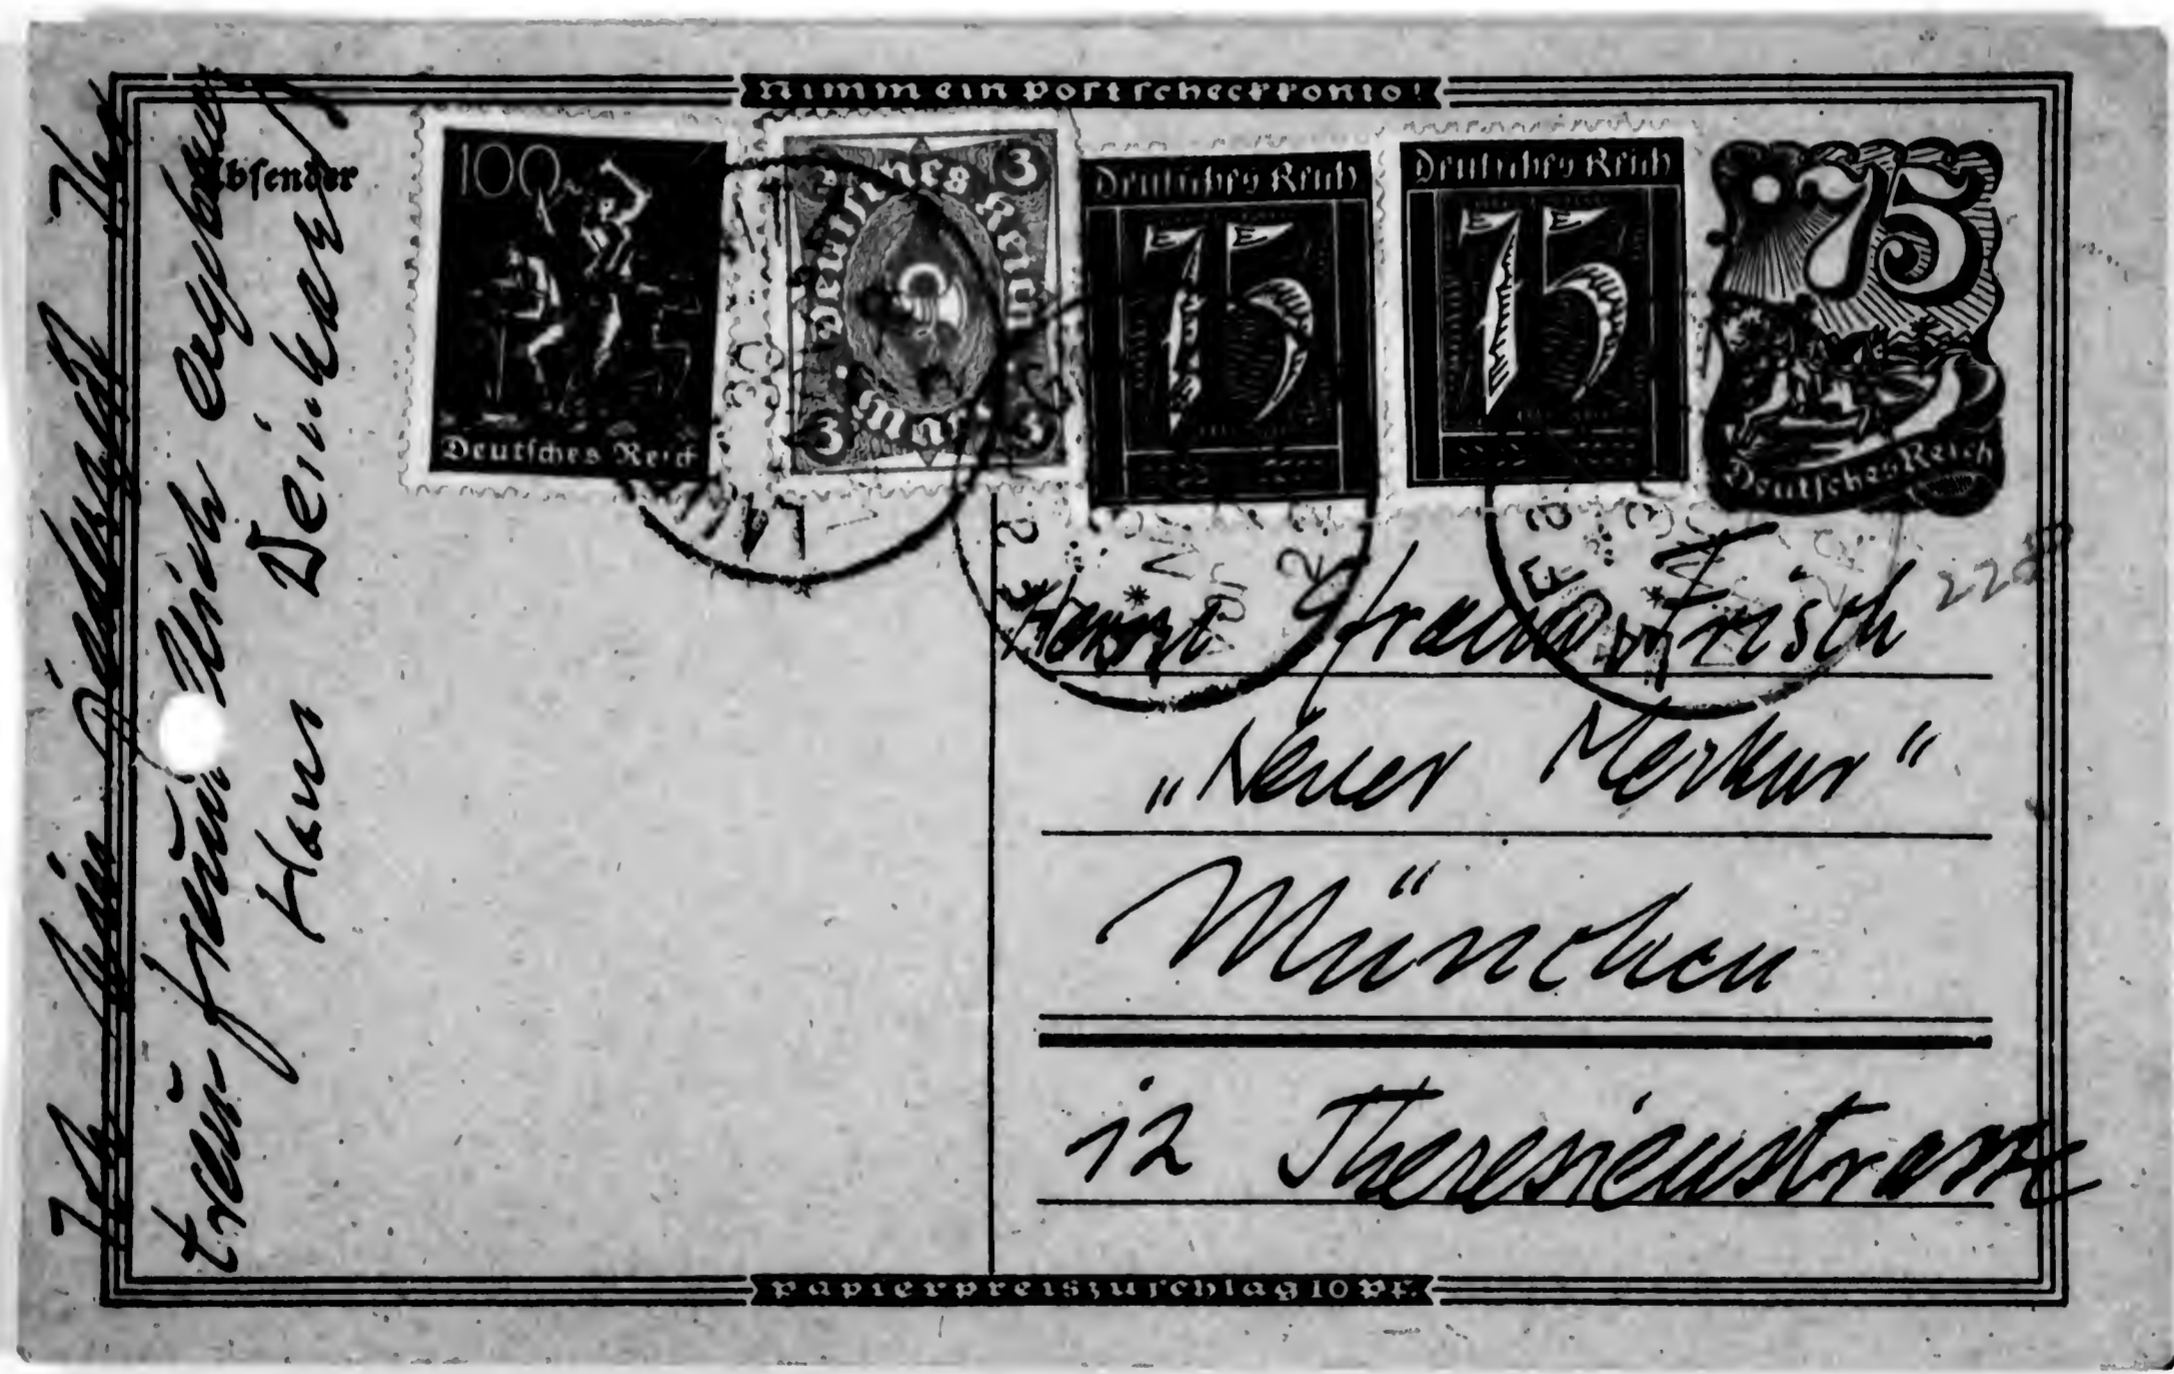 Nimm ein Postscheckkonto!
Absender
100
Deutsches Reich
Deutsches Reich
3
3
3
Mark
Deutsches Reich
75
Deutsches Reich
75
75
Deutsches Reich
Herrn Frisch
„Neuer Merkur“
München
12 Theresienstrasse
Papierpreiszuschlag 10 Pf.
Ich bin
treu freund
Hans Reinhart